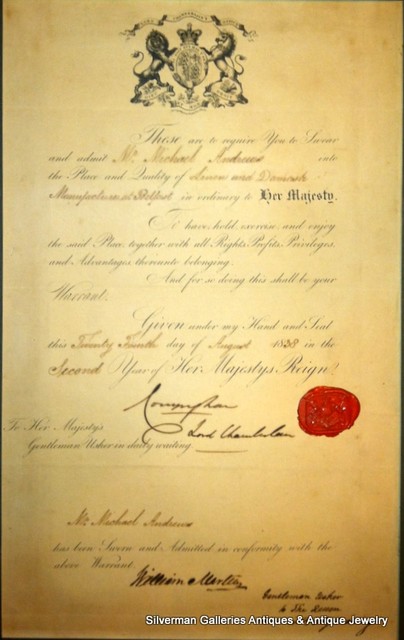 These are to require You to Swear
and admit Mr. Michael Andrews into
the Place and Quality of Linen and Damask
Manufacturer at Belfast in ordinary to Her Majesty.
To have, hold, exercise and enjoy
the said Place, together with all Rights, Profits, Privileges,
and Advantages, thereunto belonging.
And for so doing this shall be your
Warrant.
Given under my Hand and Seal
this Twenty Fourth day of August 1838 in the
Second Year of Her Majesty's Reign.
Conyngham
Lord Chamberlain
To Her Majesty's
Gentleman Usher in daily waiting.
Mr. Michael Andrews
has been Sworn and Admitted in conformity with the
above Warrant.
William Martins
Gentleman Usher
to The Queen
Silverman Galleries Antiques & Antique Jewelry